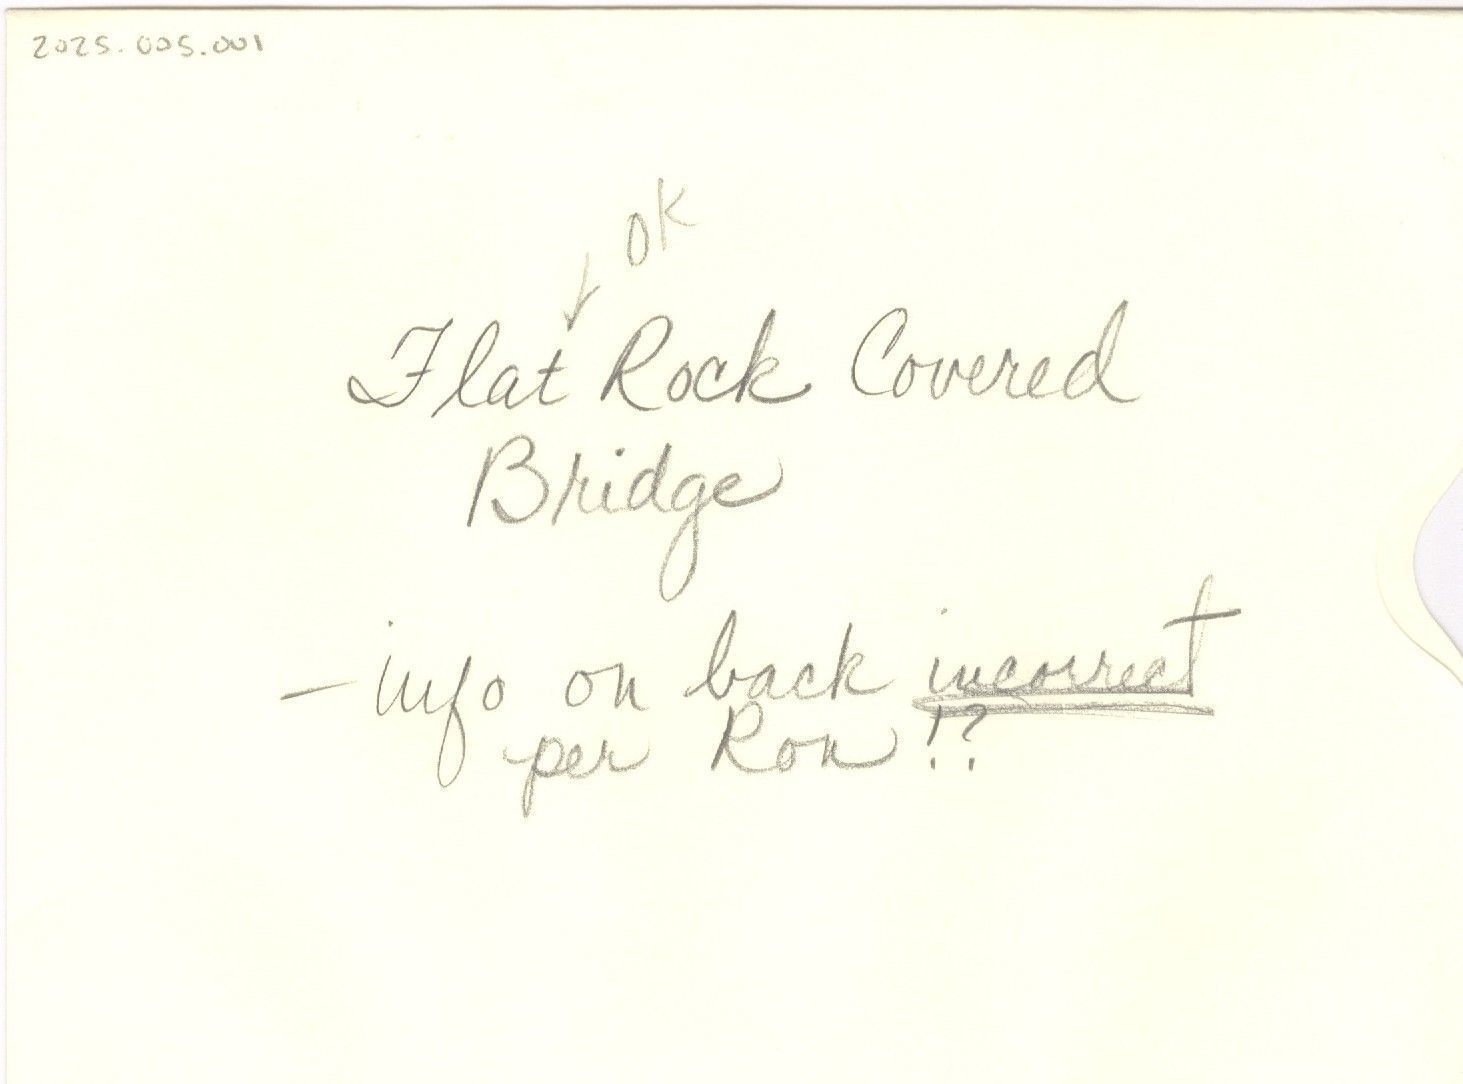 2025.005.001
OK
Flat Rock Covered
Bridge
- info on back incorrect
per Ron!?